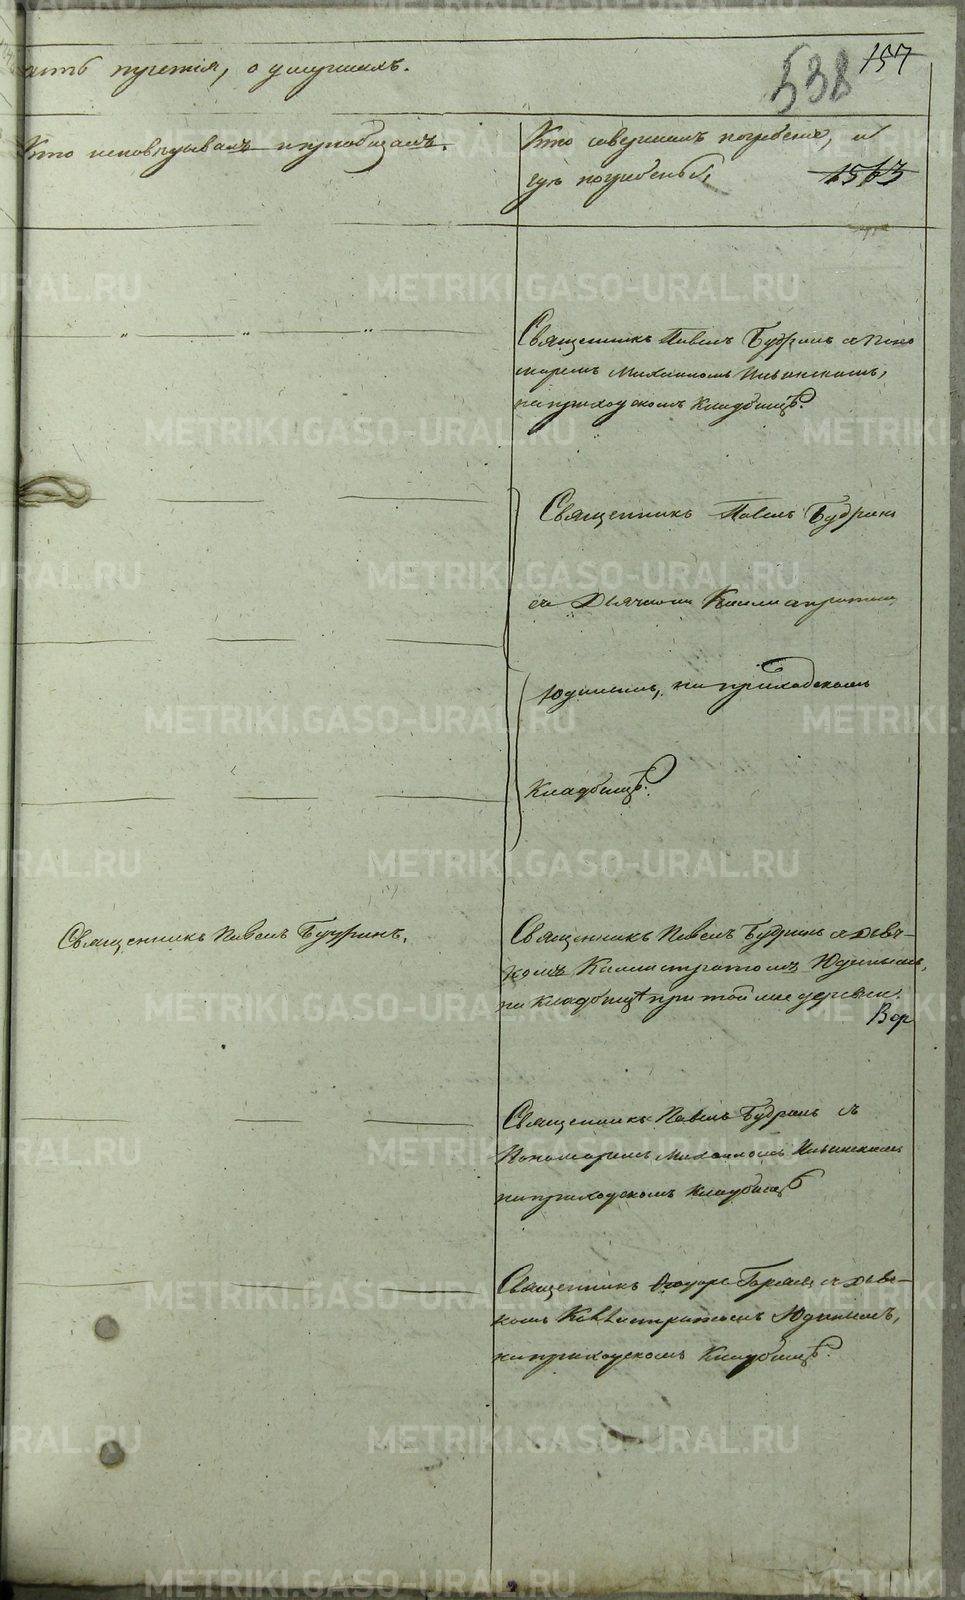 часть третія, о умершихъ.
538
157
Кто исповѣдывалъ и пріобщалъ.
Кто совершалъ погребеніе, и
гдѣ погребены.
1563
Священникъ Павелъ Будринъ съ Поно
маремъ Михаиломъ Ильинскимъ,
на приходскомъ Кладбищѣ.
Священникъ Павелъ Будринъ
съ Дьячкомъ Каллистратомъ
Юдинымъ, на приходскомъ
Кладбищѣ.
Священникъ Павелъ Будринъ.
Священникъ Павелъ Будринъ съ дьяч-
комъ Каллистратомъ Юдинымъ,
на кладбищѣ при той же деревни.
Священникъ Павелъ Будринъ съ
Пономаремъ Михаиломъ Ильинскимъ
на приходскомъ кладбищѣ
Священникъ Ѳеодоръ съ дьяч-
комъ Каллистратомъ Юдинымъ,
на приходскомъ Кладбищѣ.
METRIKI.GASO-URAL.RU